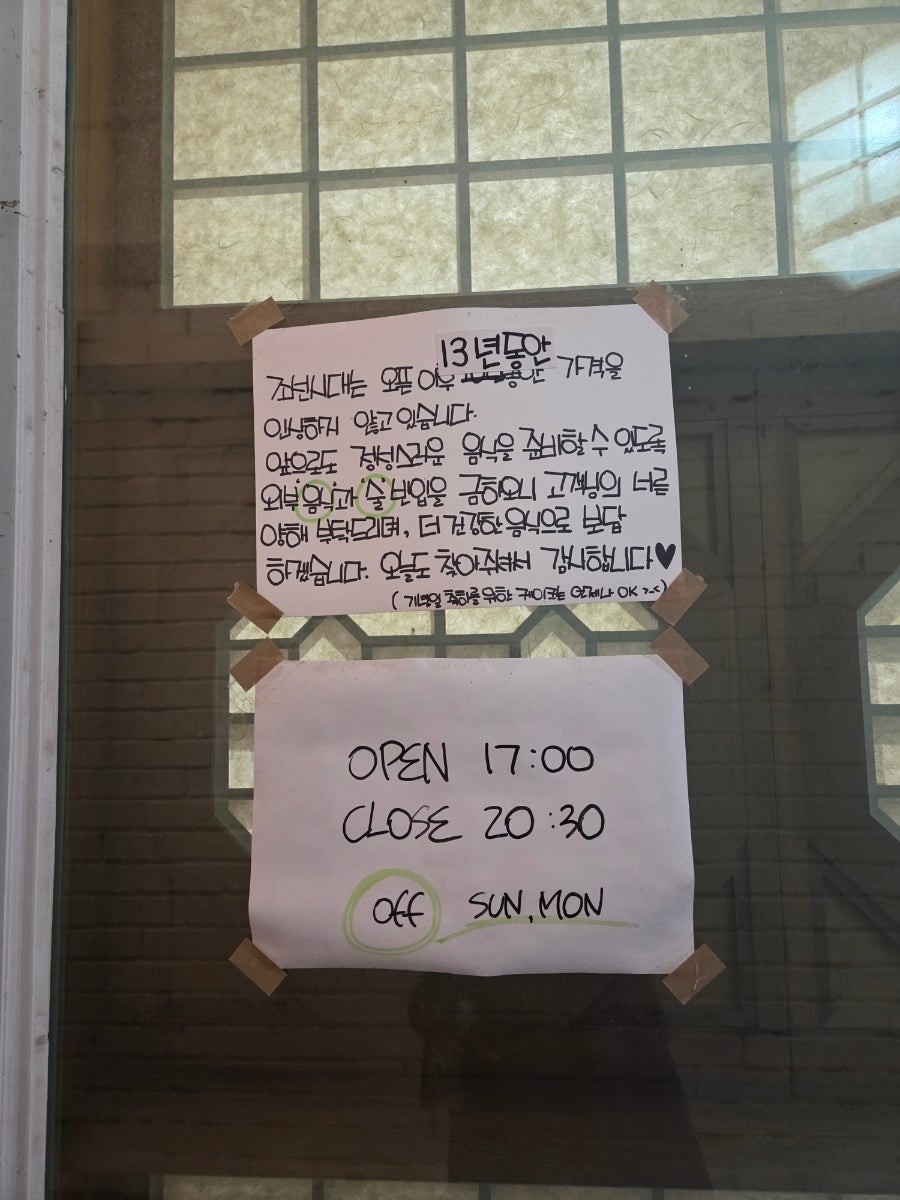 조선시대는 오픈 이후 13년동안 가격을
인상하지 않고 있습니다.
앞으로도 정성스러운 음식을 준비할 수 있도록
외부음식과 술 반입을 금하오니 고객님의 너른
양해 부탁드리며, 더 건강한 음식으로 보답
하겠습니다. 오늘도 찾아주셔서 감사합니다♥
(기념일 축하를 위한 케이크는 언제나 OK >.<)
OPEN 17:00
CLOSE 20:30
Off SUN, MON